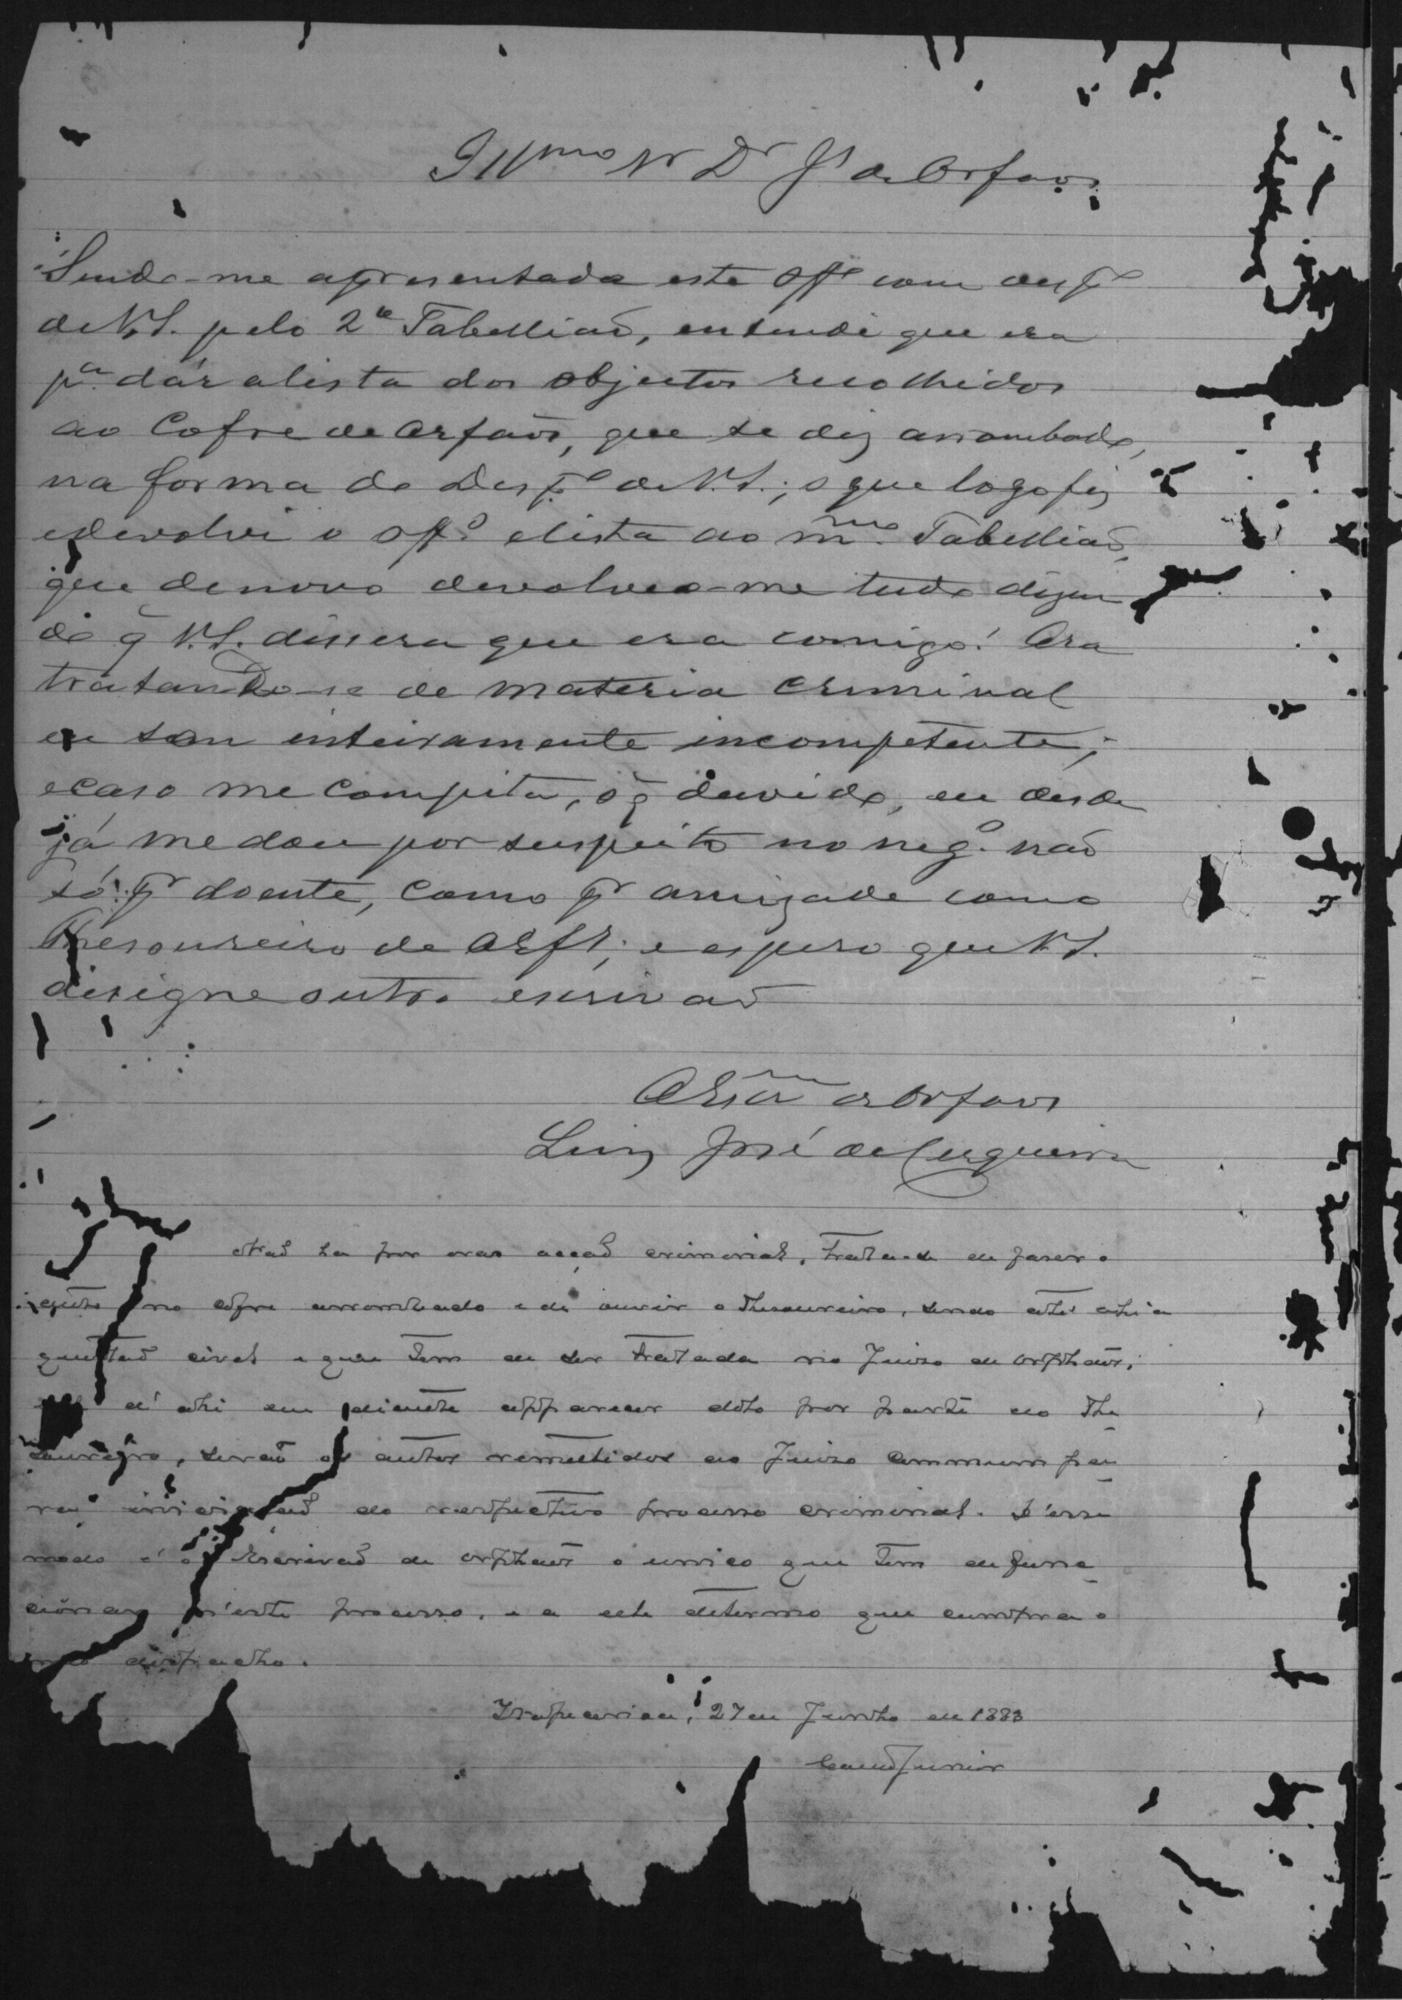 Illmo Sr Dr Js de Orfaõs
Sendo-me apresentada este offo com despo
de V.S. pelo 2º Tabelliaõ, entendi que era
pa dár alista dos objectos recolhidos
ao Cofre de Orfaõs, que se diz arrombado,
na forma do Despo de V.S.; o que logo fiz
edevolvi o offº elista ao mmo Tabelliaõ,
que denovo devolveo-me tudo dizen
do q̃ V.S. dissera que era comigo! Ora
tratando-se de materia criminal
eu sou inteiramente incompetente;
ecaso me compita, o q̃ duvido, eu desde
já me dou por suspeito no negº. naõ
só pr doente, como pr amizade como
Thesoureiro de Orfs; e espero que V.S.
designe outro escrivaõ
OEscm de Orfaos
Luiz José de Cerqueira
Naõ ha por ora acçaõ criminal. Trata-se de fazer o
no cofre arrombado e de ouvir o thesoureiro, sendo até ahi a
questaõ civel e que tem de ser tratada no Juizo de Orphaõs;
d'ahi em diante apparecer dolo por parte do the
soureiro, seraõ os autos remettidos ao Juizo commum pa
ra do respectivo processo criminal. D'esse
modo é o Escrivaõ de Orphaõs o unico que tem de func
cionar n'este processo. e a elle determo que cumpra o
meo despacho.
Itapicuru, 27 de Junho de 1883
Junior